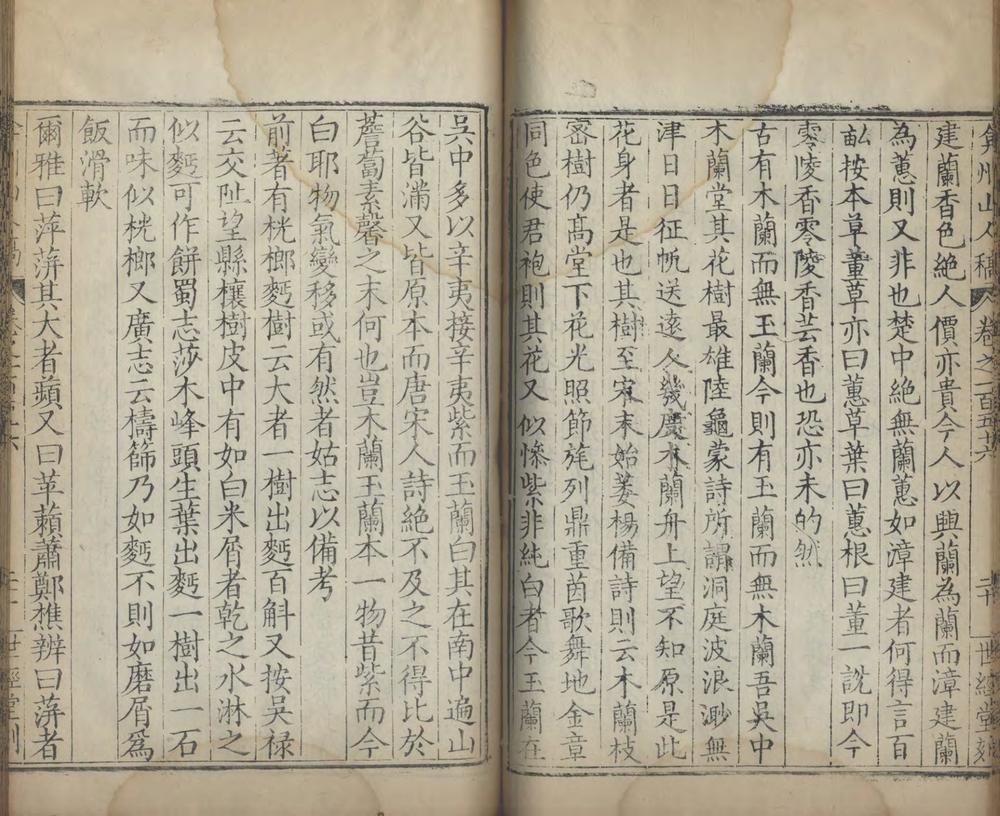 弇州山人稿 卷之一百五十六 二十 世經堂刻
建蘭香色絶人價亦貴今人以興蘭為蘭而漳建蘭
為蕙則又非也楚中絶無蘭蕙如漳建者何得言百
畆按本草薰草亦曰蕙草葉曰蕙根曰薰一説即今
零陵香零陵香芸香也恐亦未的然
古有木蘭而無玉蘭今則有玉蘭而無木蘭吾吳中
木蘭堂其花樹最雄陸龜蒙詩所謂洞庭波浪渺無
津日日征帆送遠人幾度木蘭舟上望不知原是此
花身者是也其樹至宋末始萎楊備詩則云木蘭枝
密樹仍高堂下花光照節旄列鼎重茵歌舞地金章
同色使君袍則其花又似慘紫非純白者今玉蘭在
吳中多以辛夷接辛夷紫而玉蘭白其在南中遍山
谷皆滿又皆原本而唐宋人詩絶不及之不得比於
薝蔔素馨之末何也豈木蘭玉蘭本一物昔紫而今
白耶物氣變移或有然者姑志以備考
前著有桄榔麪樹云大者一樹出麪百斛又按吳禄
云交阯望縣欀樹皮中有如白米屑者乾之水淋之
似麪可作餅蜀志莎木峰頭生葉出麪一樹出一石
而味似桄榔又廣志云擣篩乃如麪不則如磨屑爲
飯滑軟
爾雅曰萍蓱其大者蘋又曰苹藾蕭鄭樵辨曰蓱者